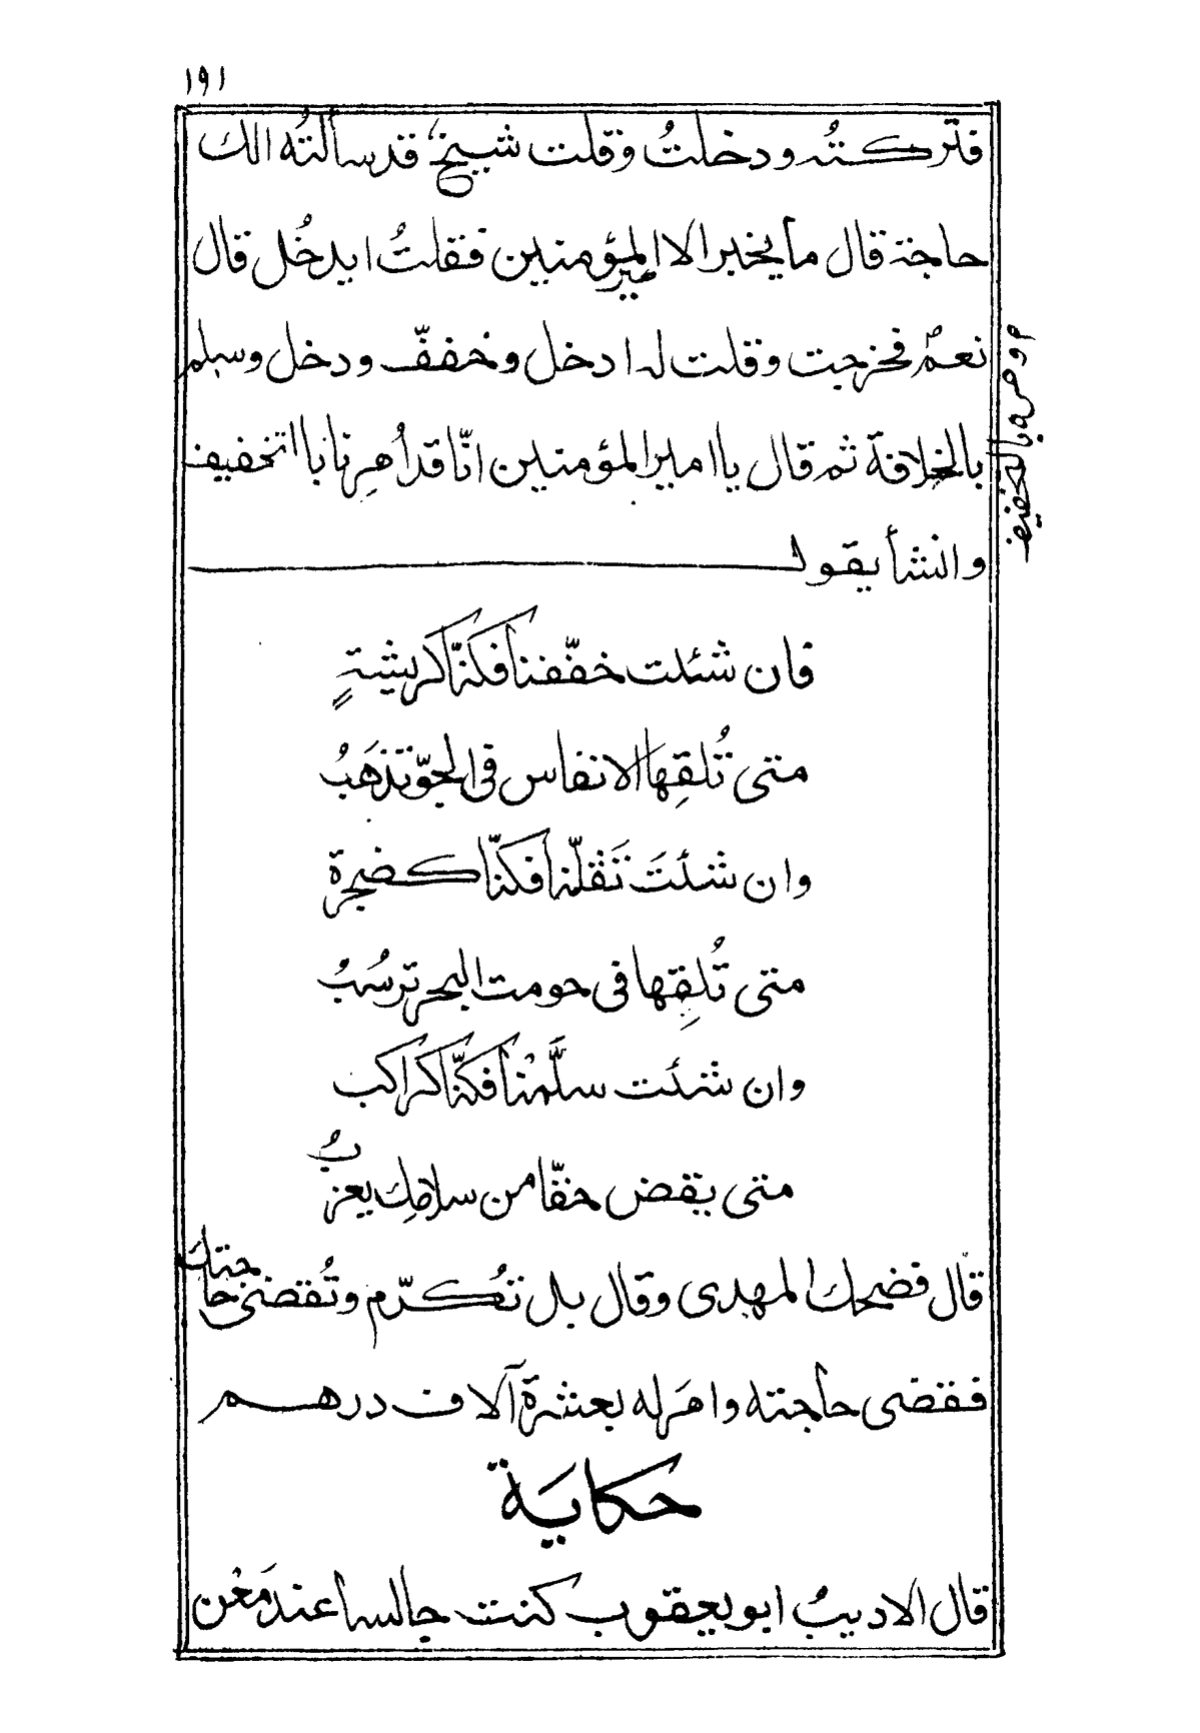 ١٩١
فتركتُه ودخلتُ وقلت شيخٌ قد سألتُه الك
حاجة قال ما يخبر الا امير المؤمنين فقلتُ ايدخُل قال
نعم فخرجت وقلت له ادخل وخففّ ودخل وسلم
بالخلافة ثم قال يا امير المؤمنين انّا قد اُمِرنا با التخفيف
وانشأ يقول
فان شئت خفّفنا فكنّا كريشةٍ
متى تُلقِها الانفاس في الجوّ تذهَبُ
وان شئتَ ثَقلّنا فكنّا كصخرة
متى تُلقِها في حومت البحر ترسُبُ
وان شئت سلَّمْنا فكنّا كراكب
متى يقض حقّا من سلامِك يعزبُ
قال فضحك المهدى وقال بل تُكرّم وتُقضى حاجتك
فقضى حاجته وامَر له بعشرة آلاف درهم
حكاية
قال الاديبُ ابو يعقوب كنت جالسا عند مَعْن